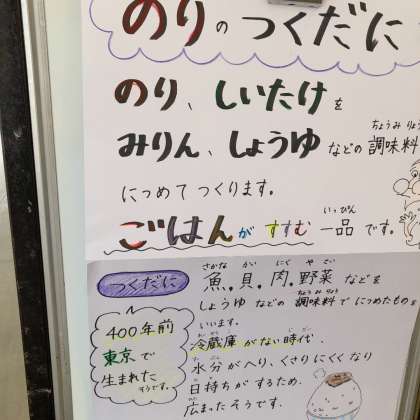 のりのつくだに
のり、しいたけを
みりん、しょうゆなどの調味料
ちょうみりょう
につめてつくります。
ごはんがすすむ一品です。
いっぴん
つくだに
魚、貝、肉、野菜などを
さかな かい にく やさい
しょうゆなどの調味料でにつめたものを
ちょうみりょう
いいます。
400年前
東京で
生まれた
そうです。
冷蔵庫がない時代
水分がへり、くさりにくくなり
日持ちがするため、
広まったそうです。